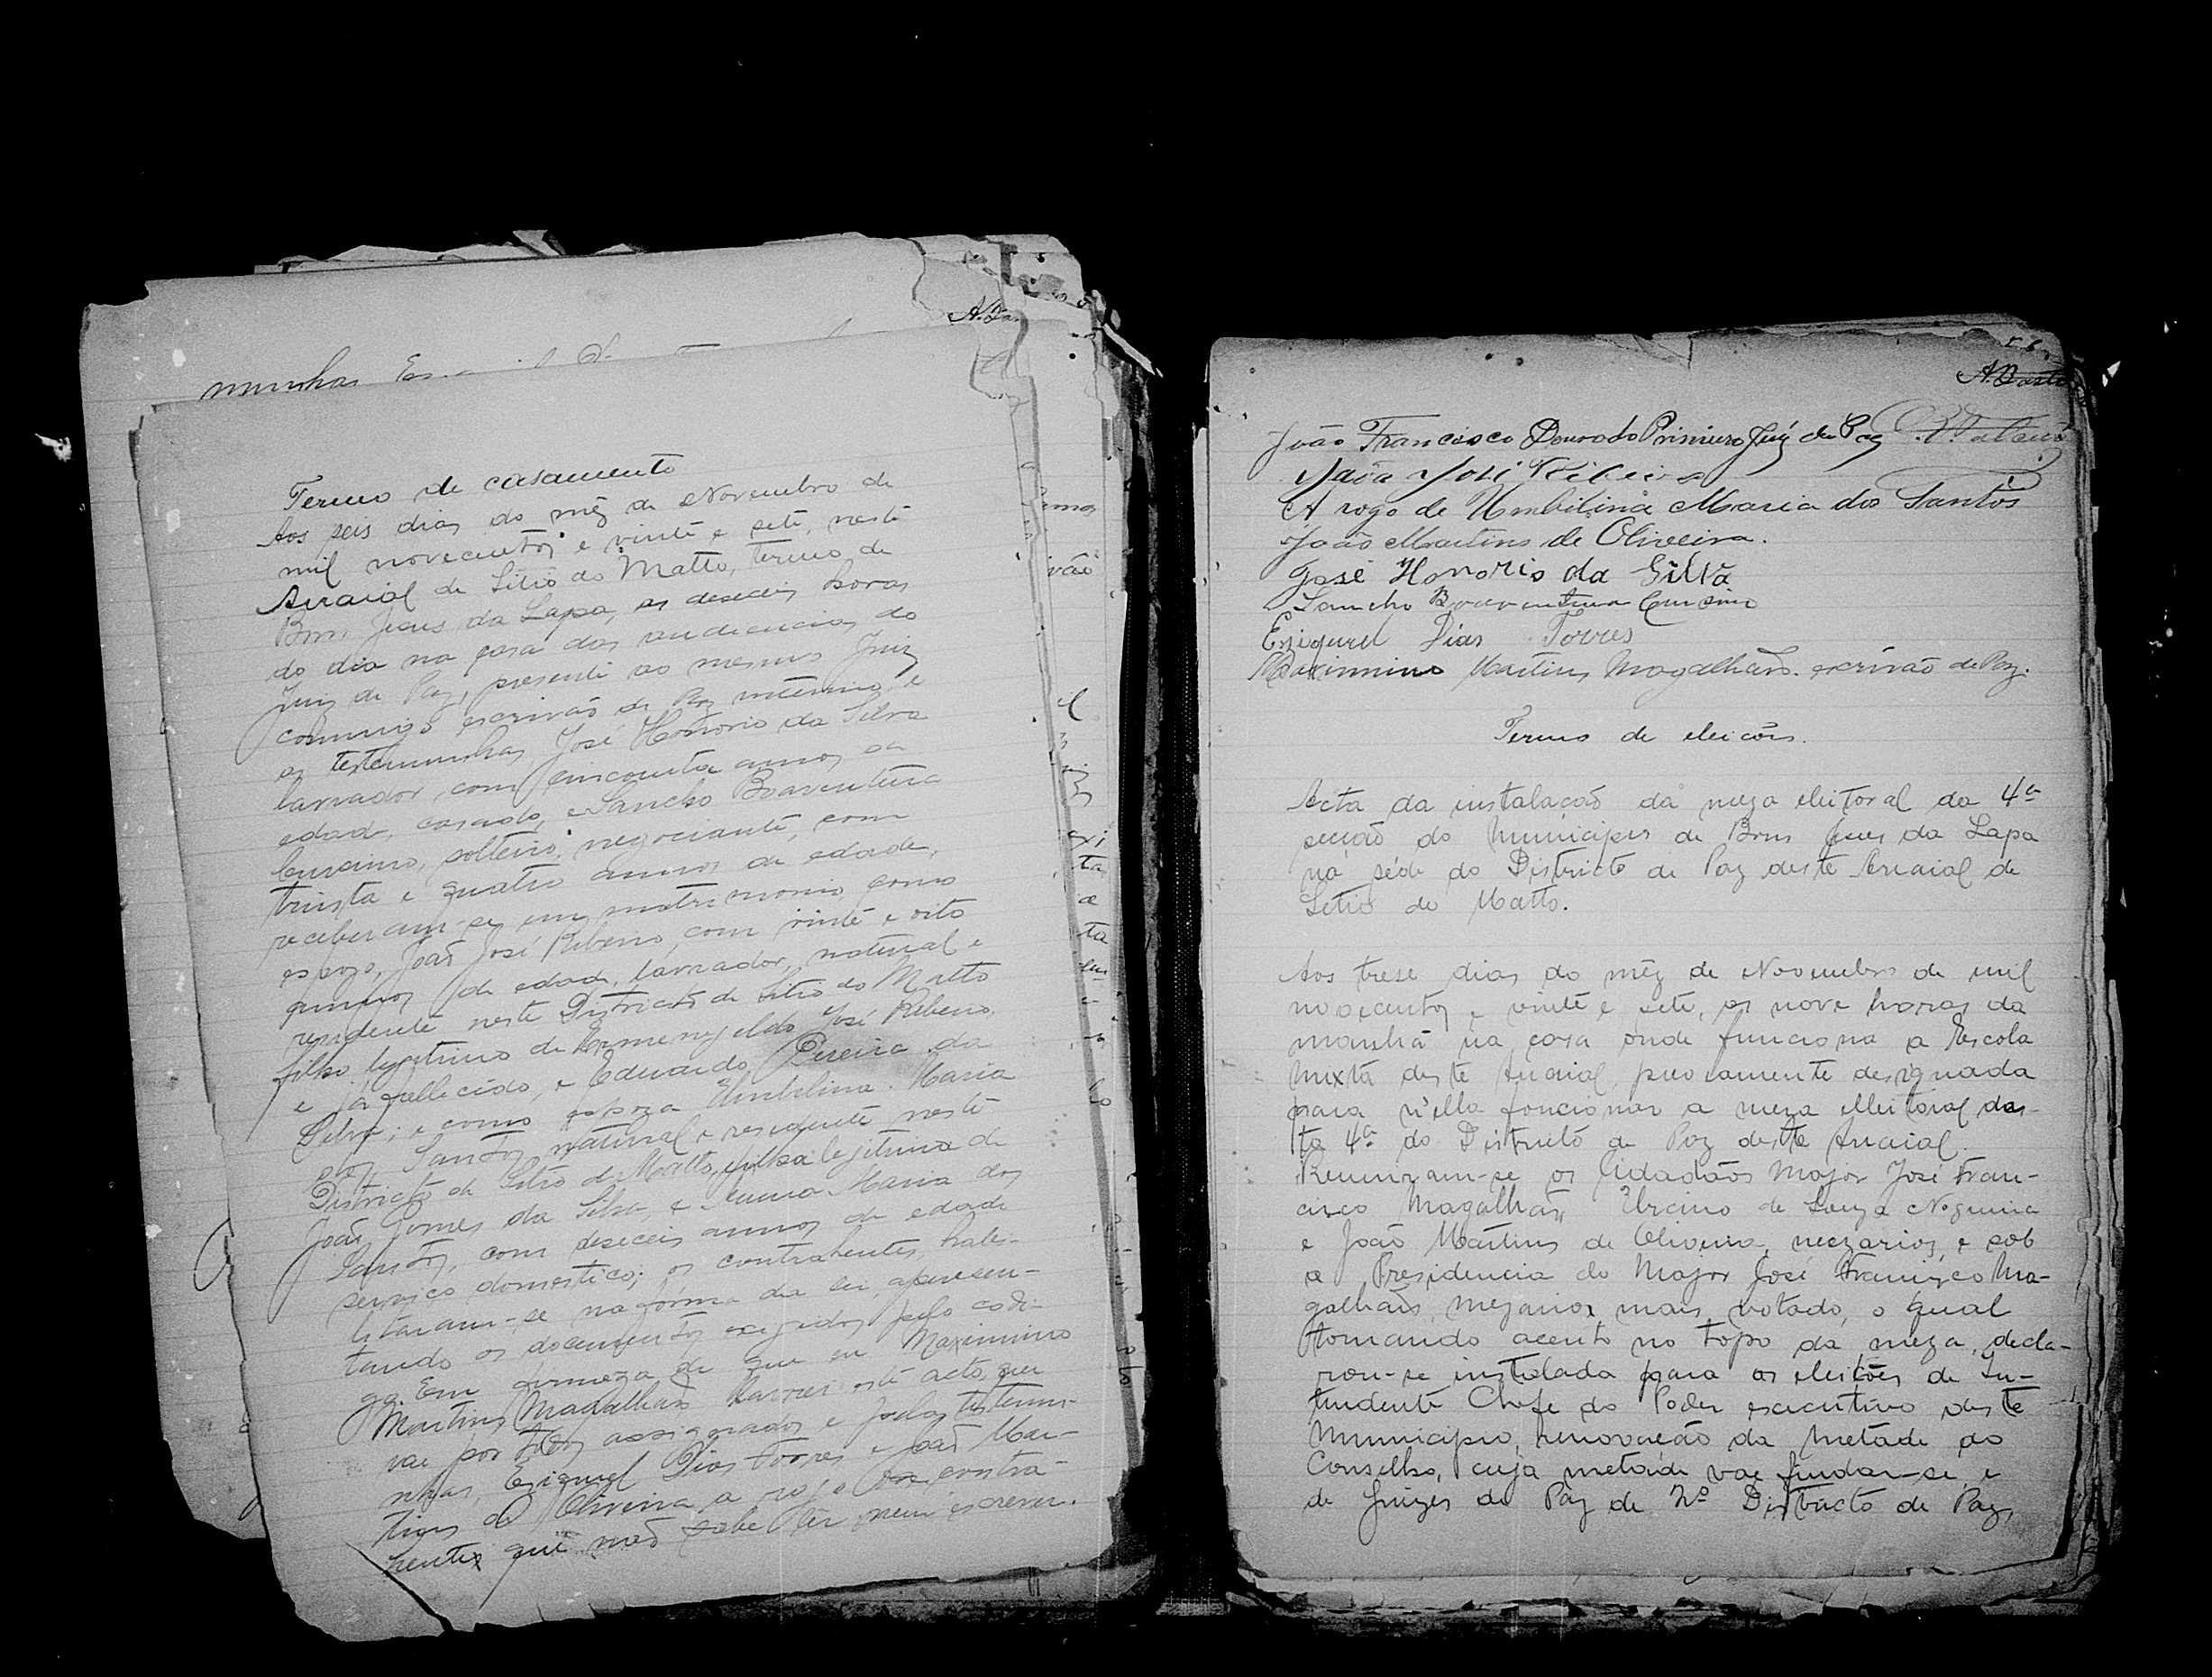 A. Ba
munhas
Termo de casamento
Aos seis dias do mêz de Novembro de
mil novecentos e vinte e sete, neste
Arraial de Sitio do Matto, termo de
Bom Jesus da Lapa, as deseceis horas
do dia na casa das audiencias do
Juiz de Paz, presente ao mesmo Juiz
commigo escrivão de Paz interino, e
as testemunhas José Honorio da Silva
lavrador, com cincoenta annos de
edade, casado, e Sancho Boaventura
Cursino, solteiro, negociante, com
trinta e quatro annos de edade,
receberam-se em matrimonio como
espozo, João José Ribeiro, com vinte e oito
annos de edade, lavrador, natural e
residente neste Districto de Sitio do Matto
filho legitimo de Hermenegildo José Ribeiro,
e já fallecido, e Eduarda Pereira da
Silva; e como espoza Umbilina Maria
dos Santos, natural e residente neste
Districto de Sitio do Matto, filha legitima de
João Gomes da Silva, e Maria dos
Santos, com deseceis annos de edade
serviço domestico; os contrahentes, habe-
litaram-se na forma da lei, apresen-
tando os documentos exigidos pelo codi-
go. Em firmeza de que eu Maximino
Martins Magalhães lavrei este acto, que
vae por todos assignados e pelas testemu-
nhas, Eziquiel Dias Torres e João Mar-
tins de Oliveira, a rogo da contra-
hente que não sabe ler nem escrever.
A. Basto
João Francisco Dourado Primeiro Juiz de Paz
João José Ribeiro
A rogo de Umbilina Maria dos Santos
João Martins de Oliveira.
José Honorio da Silva
Sancho Boaventura Cursino
Eziquiel Dias Torres
Maximmino Martins Magalhães. escrivão de Paz.
Termo de eleicões.
Acta da instalacão da meza eleitoral da 4ª
secção do Municipio de Bom Jesus da Lapa
na séde do Districto de Paz deste Arraial de
Sitio do Matto.
Aos trese dias do mêz de Novembro de mil
novecentos e vinte e sete, as nove horas da
manhã na casa onde funciona a Escola
mixta deste Arraial, previamente designada
para n'ella foncionar a meza elleitoral des-
ta 4ª do Districto de Paz deste Arraial.
Reuniram-se os Cidadãos Major José Fran-
cisco Magalhães, Ursino de Souza Nogueira
e João Martins de Oliveira, mezarios, e sob
a Presidencia do Major José Francisco Ma-
galhães, mezario mais votado, o qual
tomando acento no topo da meza, decla-
rou-se instalada para as eleicões de In-
tendente Chefe do Poder executivo deste
Municipio, renovação da metade do
Conselho, cuja metade vae findar-se e
de Juizes de Paz de Nº Districto de Paz,